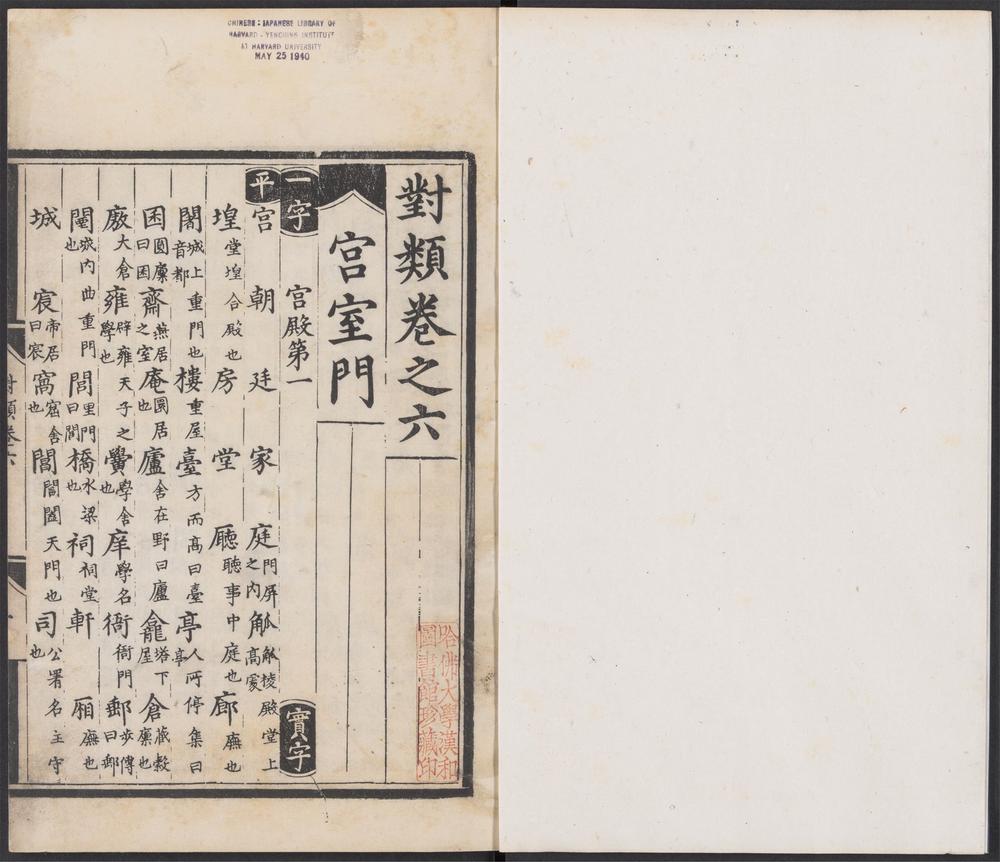 CHINESE : JAPANESE LIBRARY OF
HARVARD - YENCHING INSTITUTE
AT HARVARD UNIVERSITY
MAY 25 1940
對類卷之六
宮室門
一字 宮殿第一 實字
平 宮 朝 廷 家 庭門屏之內 觚觚棱殿堂上高處
堭堂堭合殿也 房 堂 廳聽事中庭也 廊廡也
闍城上重門也音都 樓重屋 臺方而高曰臺 亭人所停集曰亭
囷圓廩曰囷 齋燕居之室 庵圜居也 廬舍在野曰廬 龕塔下屋 倉藏穀廩也
廒大倉 雍辟雍天子之學也 黌學舍也 庠學名 衙衙門 郵步傳曰郵
闉城內曲重門也 閭里門曰閭 橋水梁也 祠祠堂 軒 廂廡也
城 宸帝居曰宸 窩窟舍也 閶閶闔天門也 司公署名主守也
對類卷六
哈佛大學漢和
圖書館珍藏印